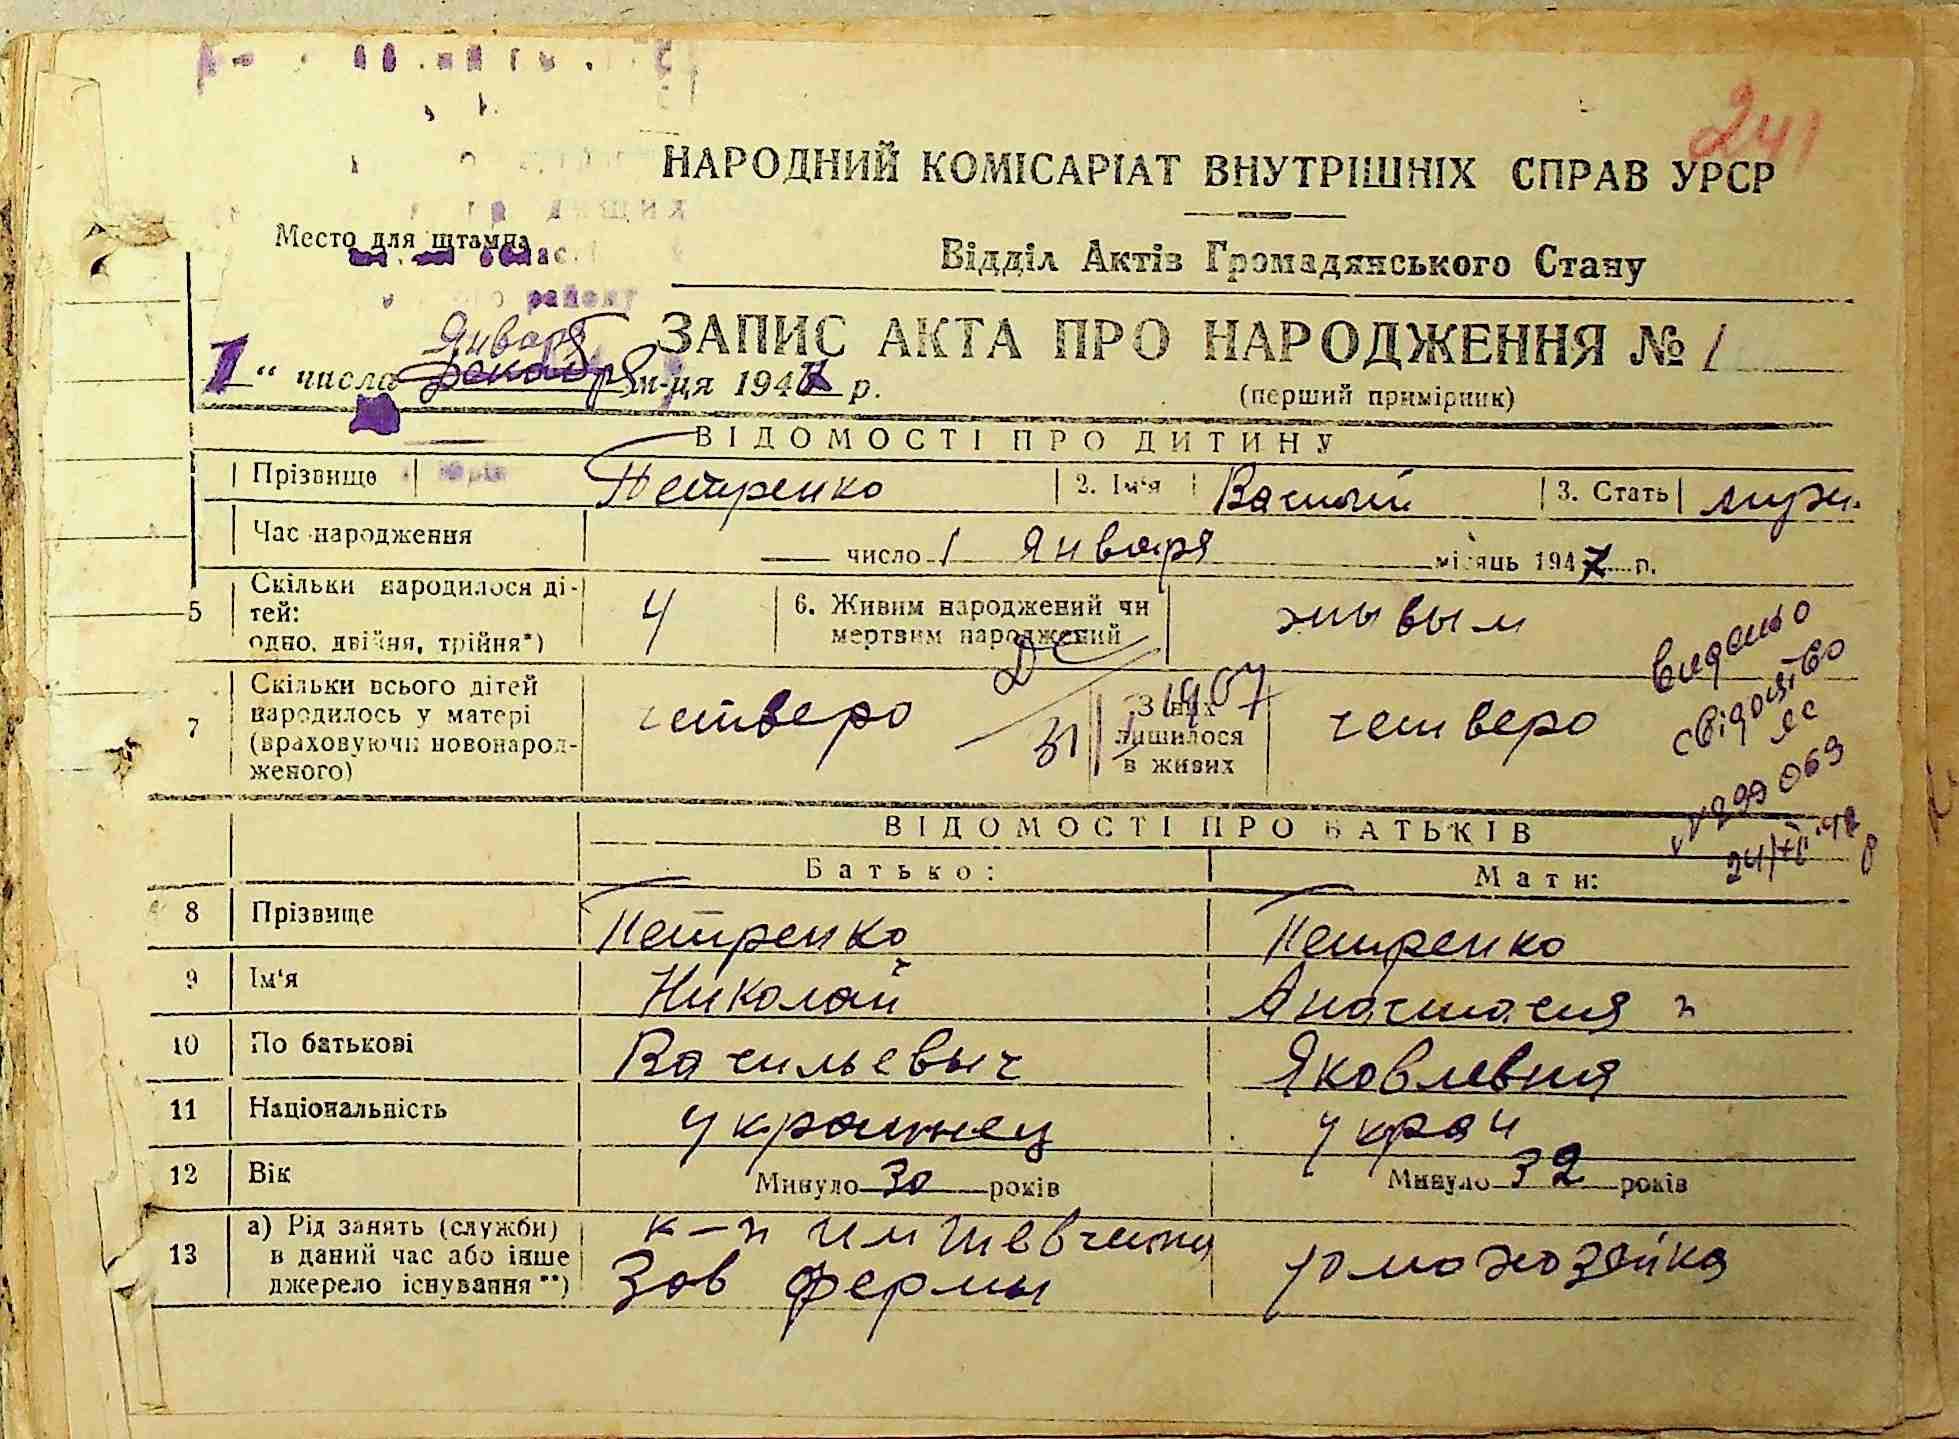 241
НАРОДНИЙ КОМІСАРІАТ ВНУТРІШНІХ СПРАВ УРСР
Место для штампа
Відділ Актів Громадянського Стану
району
Января
ЗАПИС АКТА ПРО НАРОДЖЕННЯ № 1
1 " числа декабря м-ця 1947 р.
(перший примірник)
ВІДОМОСТІ ПРО ДИТИНУ
Прізвище Петренко 2. Ім'я Василий 3. Стать муж.
Час народження число 1 Января місяць 1947 р.
5 Скільки народилося ді-
тей:
одно, двійня, трійня*) 4 6. Живим народжений чи
мертвим народжений живым
7 Скільки всього дітей
народилось у матері
(враховуючи новонарод-
женого) четверо З них
лишилося
в живих четверо
1907
видано
свідоцтво
ВІДОМОСТІ ПРО БАТЬКІВ
Батько: Мати:
8 Прізвище Петренко Петренко
9 Ім'я Николай Анастасия
10 По батькові Васильевыч Яковлевня
11 Національність украинец украи
12 Вік Минуло 30 років Минуло 32 років
13 а) Рід занять (служби)
в даний час або інше
джерело існування**) к-п им Шевченка
Зав фермы домохозяйка